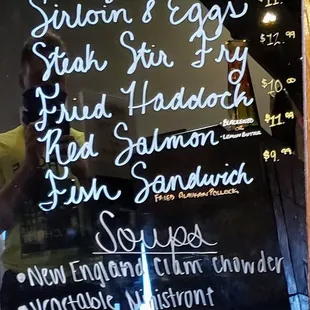 Sirloin & Eggs
Steak Stir Fry $12.99
Fried Haddock $10.
Red Salmon - Blackened or Lemon Butter $11.99
Fish Sandwich $9.99
Fried Alaskan Pollock
Soups
• New England Clam Chowder
• Vegetable Ministroni